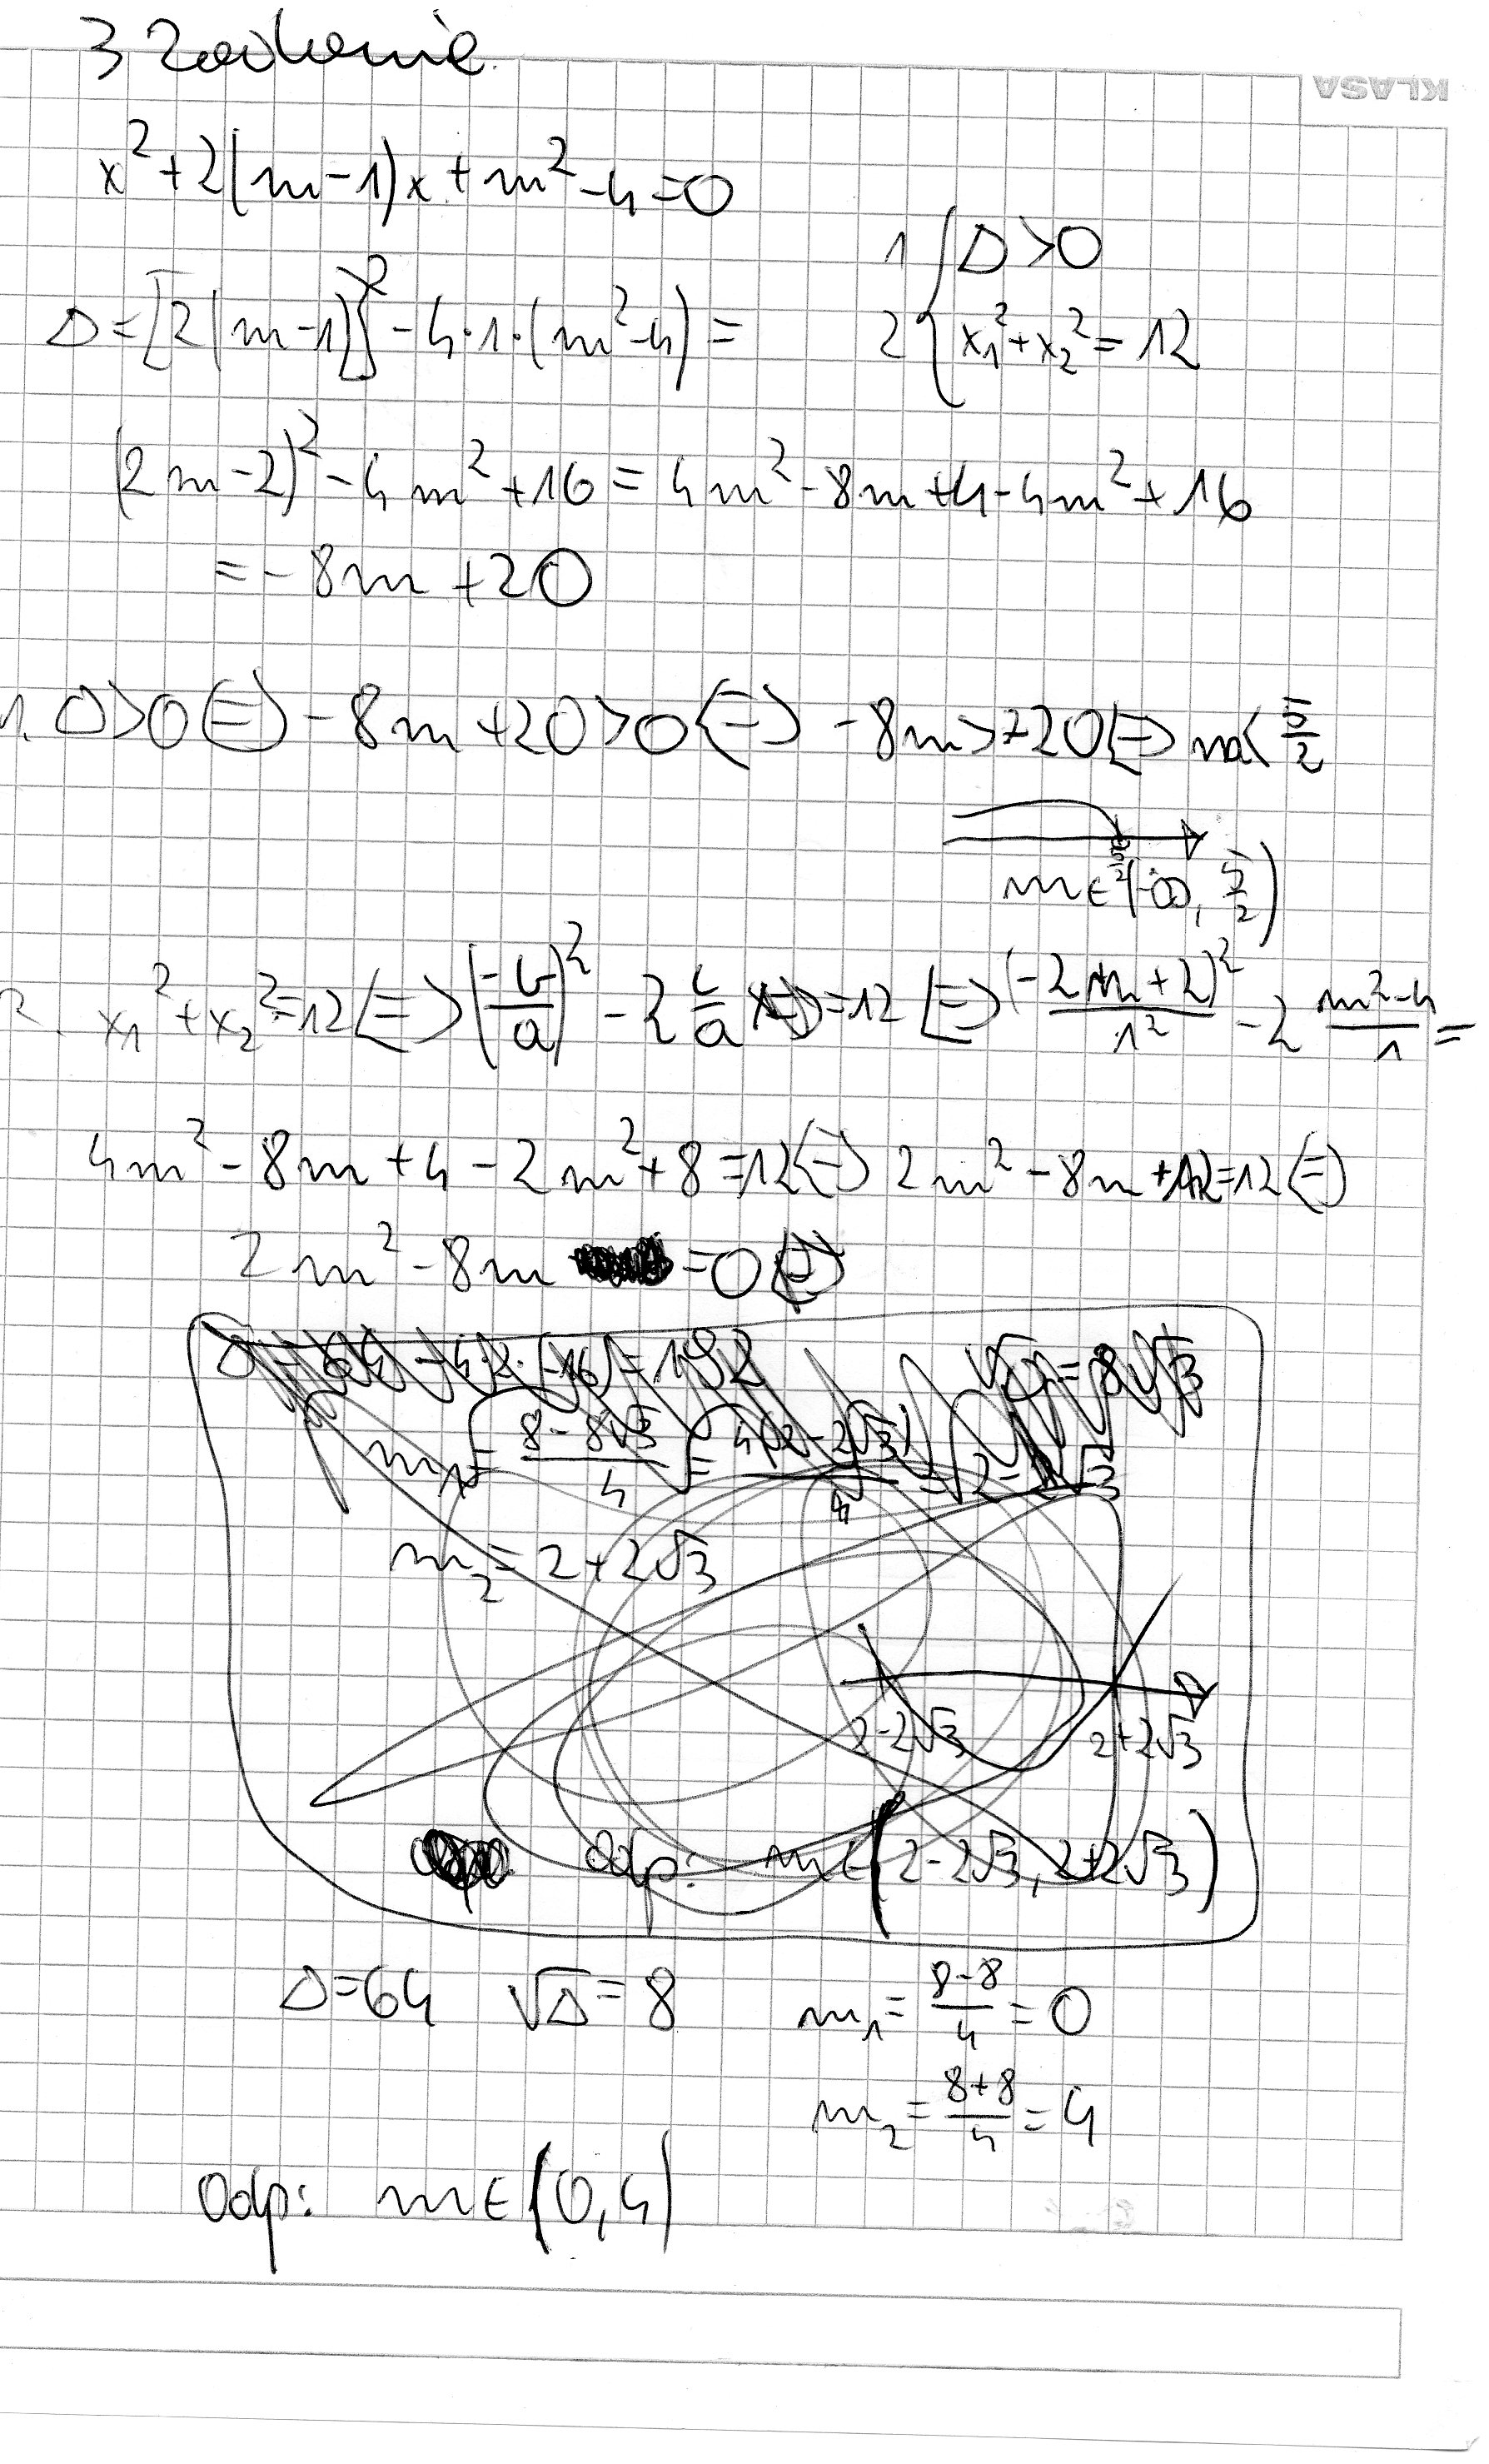 3 Zadanie.
KLASA
x²+2(m-1)x+m²-4=0
Δ=[2(m-1)]²-4·1·(m²-4)=
1 { Δ>0
2 { x₁²+x₂²=12
(2m-2)²-4m²+16=4m²-8m+4-4m²+16
=-8m+20
1. Δ>0⇔-8m+20>0⇔-8m>-20⇔m<5/2
5/2
m∈(-∞, 5/2)
2. x₁²+x₂²=12⇔(-b/a)²-2c/a=12⇔(-2m+2)²/1²-2 (m²-4)/1=
4m²-8m+4-2m²+8=12⇔2m²-8m+12=12⇔
2m²-8m=0⇔
Δ=64-4·2·(-16)=192 √Δ=8√3
m₁=(8-8√3)/4=4(2-2√3)/4=2-2√3
m₂=2+2√3
2-2√3 2+2√3
Odp: m∈(2-2√3, 2+2√3)
Δ=64 √Δ=8 m₁=(8-8)/4=0
m₂=(8+8)/4=4
Odp: m∈(0,4)